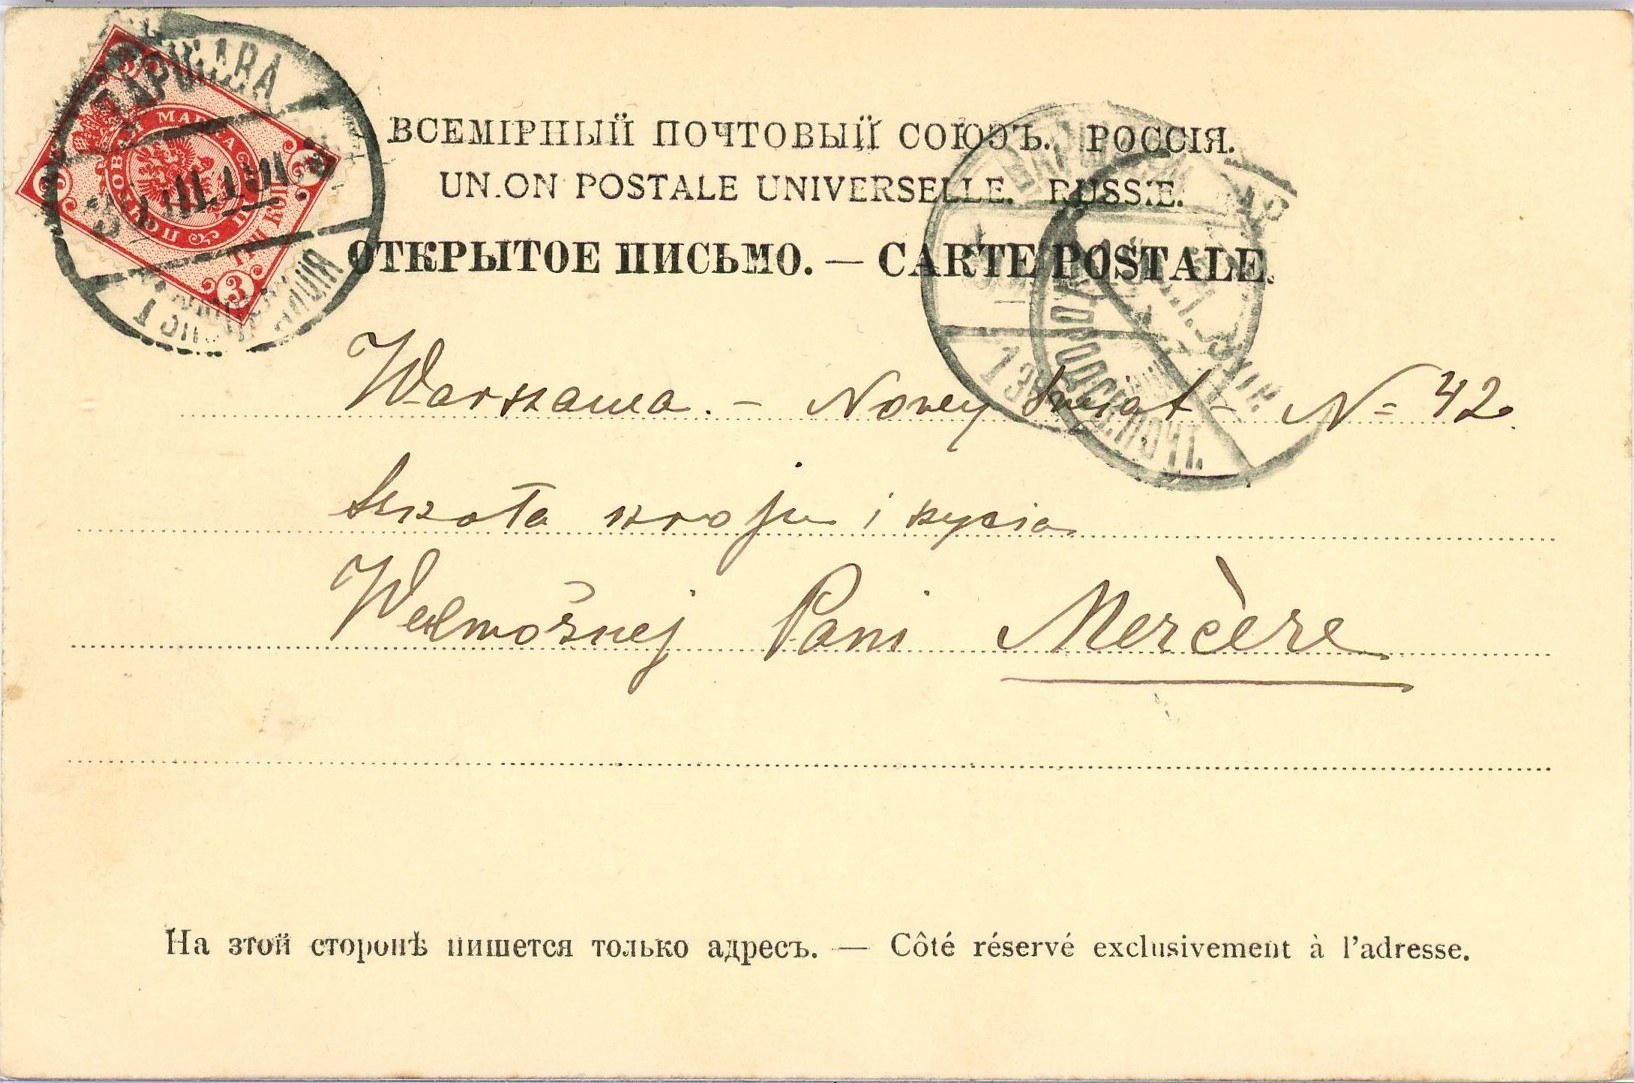 ВСЕМІРНЫЙ ПОЧТОВЫЙ СОЮЗЪ. РОССІЯ.
UNION POSTALE UNIVERSELLE. RUSSIE.
ОТКРЫТОЕ ПИСЬМО. — CARTE POSTALE.
МАРКА
3
3
3
Warszawa. – Nowy Świat – № 42.
Szkoła kroju i szycia
Wielmożnej Pani Mercère
На этой сторонѣ пишется только адресъ. — Côté réservé exclusivement à l'adresse.